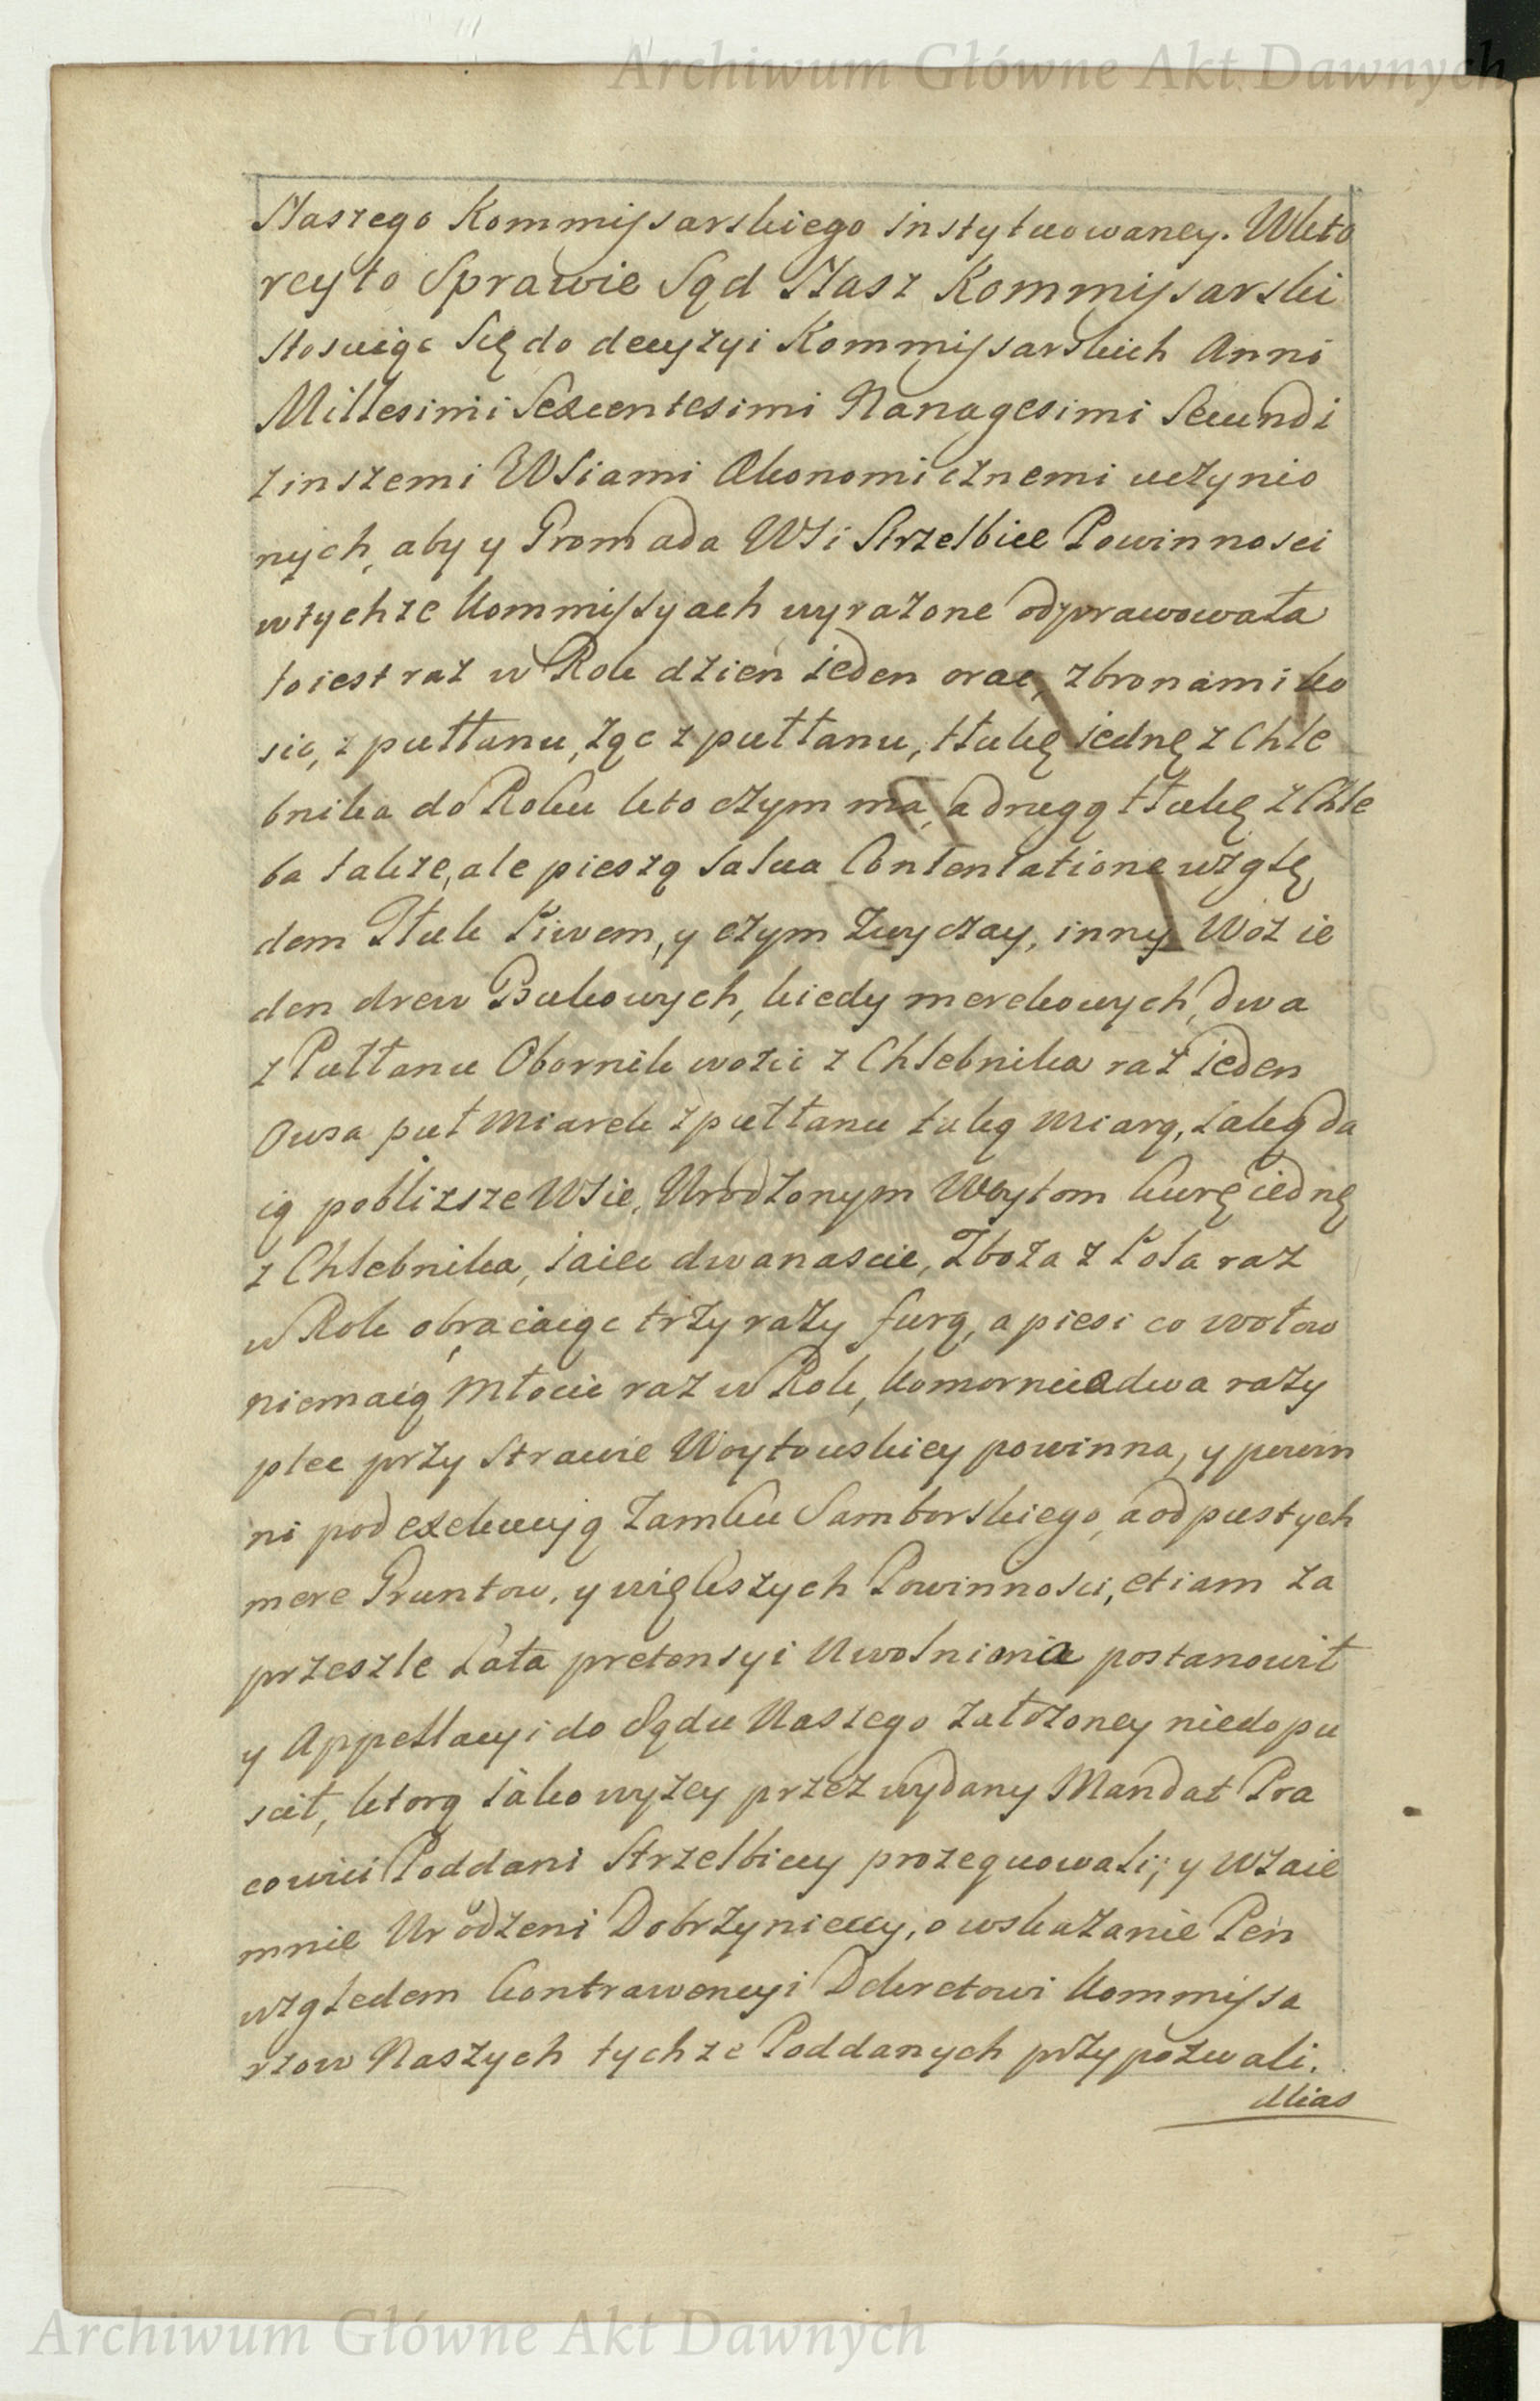 Archiwum Główne Akt Dawnych
Naszego Kommissarskiego instytuowaney. Wkto
rey to Sprawie Sąd Nasz Kommissarski
stosuiąc Się do decyzyi Kommissarskich Anni
Millesimi Sexcentesimi Nanagesimi Secundi
z inszemi WSiami Ekonomicznemi uczynio
nych, aby y Gromada WSi Strzelbice Powinnosci
w tychze Kommissyach wyrazone odprawowała
to iest raz w Rok dzien ieden orac, z bronami ko
sic, z pułłanu,Ząc z pułłanu, tłukę iednę z Chle
bnika do Roku kto czym ma, a drugą tłukę z Chle
ba takze, ale pieszą salva Contentatione wzglę
dem Tłuk Piwem, y czym Zwyczay, inny Woz ie
den drew Bukowych, kiedy merekowych, dwa
z Pułłanu Obornik wozic z Chlebnika raz ieden
Owsa puł Miarek z pułłanu taką Miarą, Iaką da
ią poblizsze WSie, Urodzonym Woytom kurę iednę
z Chlebnika, iaiec dwanascie, Zboza z Pola raz
w Rok obracaiąc trzy razy furą, a piesi co wołow
niemaią Młocic raz w Rok, komornica dwa razy
plec przy Strawie Woytowskiey powinna, y powin
ni pod exekucyją Zamku Samborskiego, a od pustych
mere Gruntow, y większych Powinnosci, etiam za
przeszle Lata pretensyi Uwolnienia postanowił
y Appellacyi do Sądu Naszego załozoney niedopu
scił, ktorą iako wyzey przez wydany Mandat Pra
cowici Poddani Strzelbiccy prozequowali; y Wzaie
mnie Urodzeni Dobrzynieccy, o wskazanie Pen
względem kontrawencyi Dekretowi Kommissa
rzow Naszych tychze Poddanych przypozwali.
Archiwum Główne Akt Dawnych